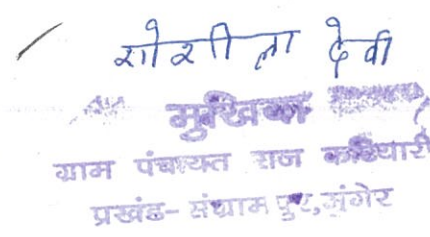 शोशीला देवी
मुखिया
ग्राम पंचायत राज कठियारी
प्रखंड- संग्रामपुर, मुंगेर